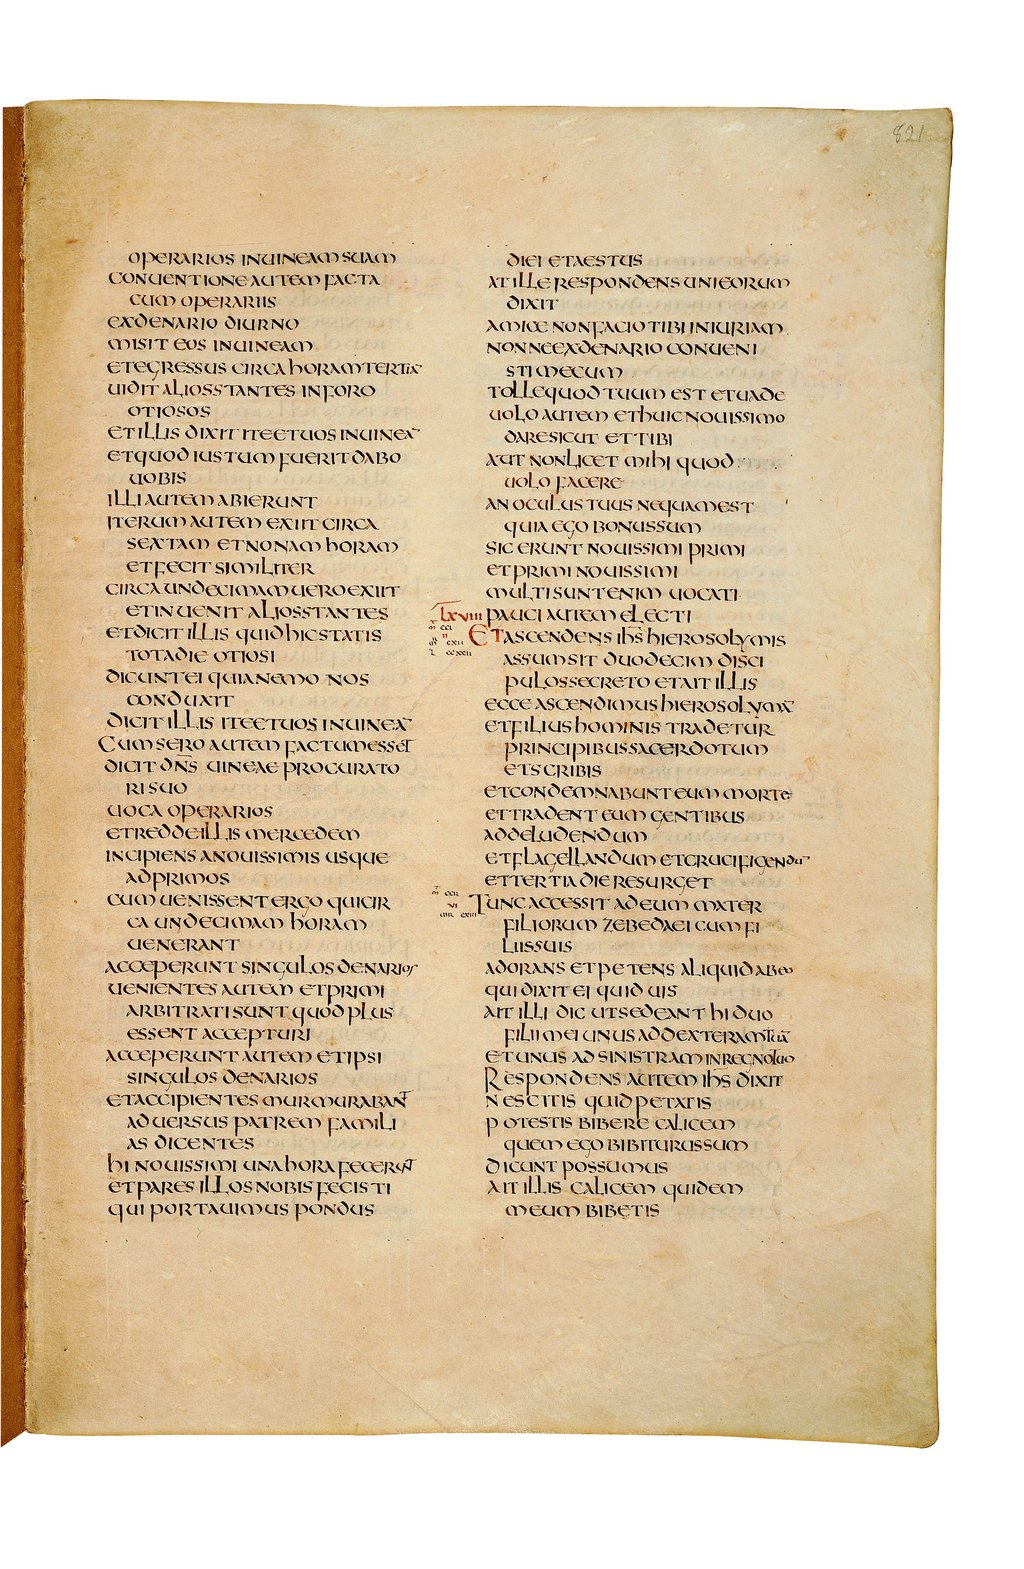 821
OPERARIOS IN UINEAM SUAM
CONUENTIONE AUTEM FACTA
CUM OPERARIIS
EX DENARIO DIURNO
MISIT EOS IN UINEAM
ET EGRESSUS CIRCA HORAM TERTIA
UIDIT ALIOS STANTES IN FORO
OTIOSOS
ET ILLIS DIXIT ITE ET UOS IN UINEA
ET QUOD IUSTUM FUERIT DABO
UOBIS
ILLI AUTEM ABIERUNT
ITERUM AUTEM EXIIT CIRCA
SEXTAM ET NONAM HORAM
ET FECIT SIMILITER
CIRCA UNDECIMAM UERO EXIIT
ET INUENIT ALIOS STANTES
ET DICIT ILLIS QUID HIC STATIS
TOTA DIE OTIOSI
DICUNT EI QUIA NEMO NOS
CONDUXIT
DICIT ILLIS ITE ET UOS IN UINEA
CUM SERO AUTEM FACTUM ESSET
DICIT DN̄S UINEAE PROCURATO
RI SUO
UOCA OPERARIOS
ET REDDE ILLIS MERCEDEM
INCIPIENS A NOUISSIMIS USQUE
AD PRIMOS
CUM UENISSENT ERGO QUI CIR
CA UNDECIMAM HORAM
UENERANT
ACCEPERUNT SINGULOS DENARIOS
UENIENTES AUTEM ET PRIMI
ARBITRATI SUNT QUOD PLUS
ESSENT ACCEPTURI
ACCEPERUNT AUTEM ET IPSI
SINGULOS DENARIOS
ET ACCIPIENTES MURMURABANT
ADUERSUS PATREM FAMILI
AS DICENTES
HI NOUISSIMI UNA HORA FECERUNT
ET PARES ILLOS NOBIS FECISTI
QUI PORTAUIMUS PONDUS
DIEI ET AESTUS
AT ILLE RESPONDENS UNI EORUM
DIXIT
AMICE NON FACIO TIBI INIURIAM
NONNE EX DENARIO CONUENI
STI MECUM
TOLLE QUOD TUUM EST ET UADE
UOLO AUTEM ET HUIC NOUISSIMO
DARE SICUT ET TIBI
AUT NON LICET MIHI QUOD
UOLO FACERE
AN OCULUS TUUS NEQUAM EST
QUIA EGO BONUS SUM
SIC ERUNT NOUISSIMI PRIMI
ET PRIMI NOUISSIMI
MULTI SUNT ENIM UOCATI
LXVIII PAUCI AUTEM ELECTI
ET ASCENDENS IH̄S HIEROSOLYMIS
ASSUMSIT DUODECIM DISCI
PULOS SECRETO ET AIT ILLIS
ECCE ASCENDIMUS HIEROSOLYMA
ET FILIUS HOMINIS TRADETUR
PRINCIPIBUS SACERDOTUM
ET SCRIBIS
ET CONDEMNABUNT EUM MORTE
ET TRADENT EUM GENTIBUS
AD DELUDENDUM
ET FLAGELLANDUM ET CRUCIFIGENDU̅
ET TERTIA DIE RESURGET
TUNC ACCESSIT AD EUM MATER
FILIORUM ZEBEDAEI CUM FI
LIIS SUIS
ADORANS ET PETENS ALIQUID AB EO
QUI DIXIT EI QUID UIS
AIT ILLI DIC UT SEDEANT HI DUO
FILII MEI UNUS AD DEXTERAM TUĀ
ET UNUS AD SINISTRAM IN REGNO TUO
RESPONDENS AUTEM IH̄S DIXIT
NESCITIS QUID PETATIS
POTESTIS BIBERE CALICEM
QUEM EGO BIBITURUS SUM
DICUNT POSSUMUS
AIT ILLIS CALICEM QUIDEM
MEUM BIBETIS